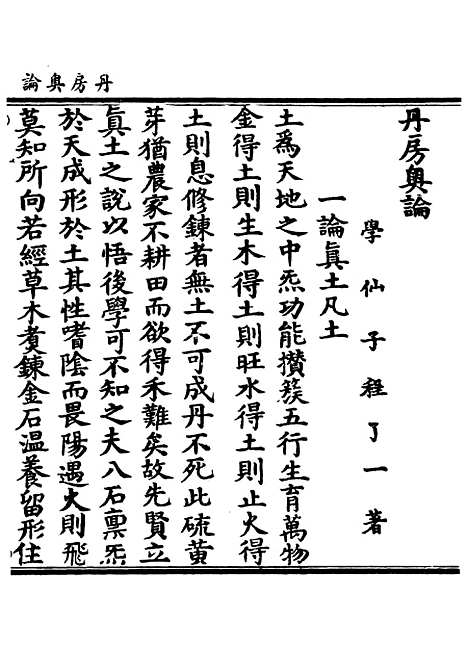 丹房奥論
丹房奥論
學仙子程了一著
一論眞土凡土
土爲天地之中炁功能攢簇五行生育萬物
金得土則生木得土則旺水得土則止火得
土則息修鍊者無土不可成丹不死此硫黄
芽猶農家不耕田而欲得禾難矣故先賢立
眞土之說以悟後學可不知之夫八石禀炁
於天成形於土其性嗜隂而畏陽遇火則飛
莫知所向若經草木煑鍊金石温養留形住